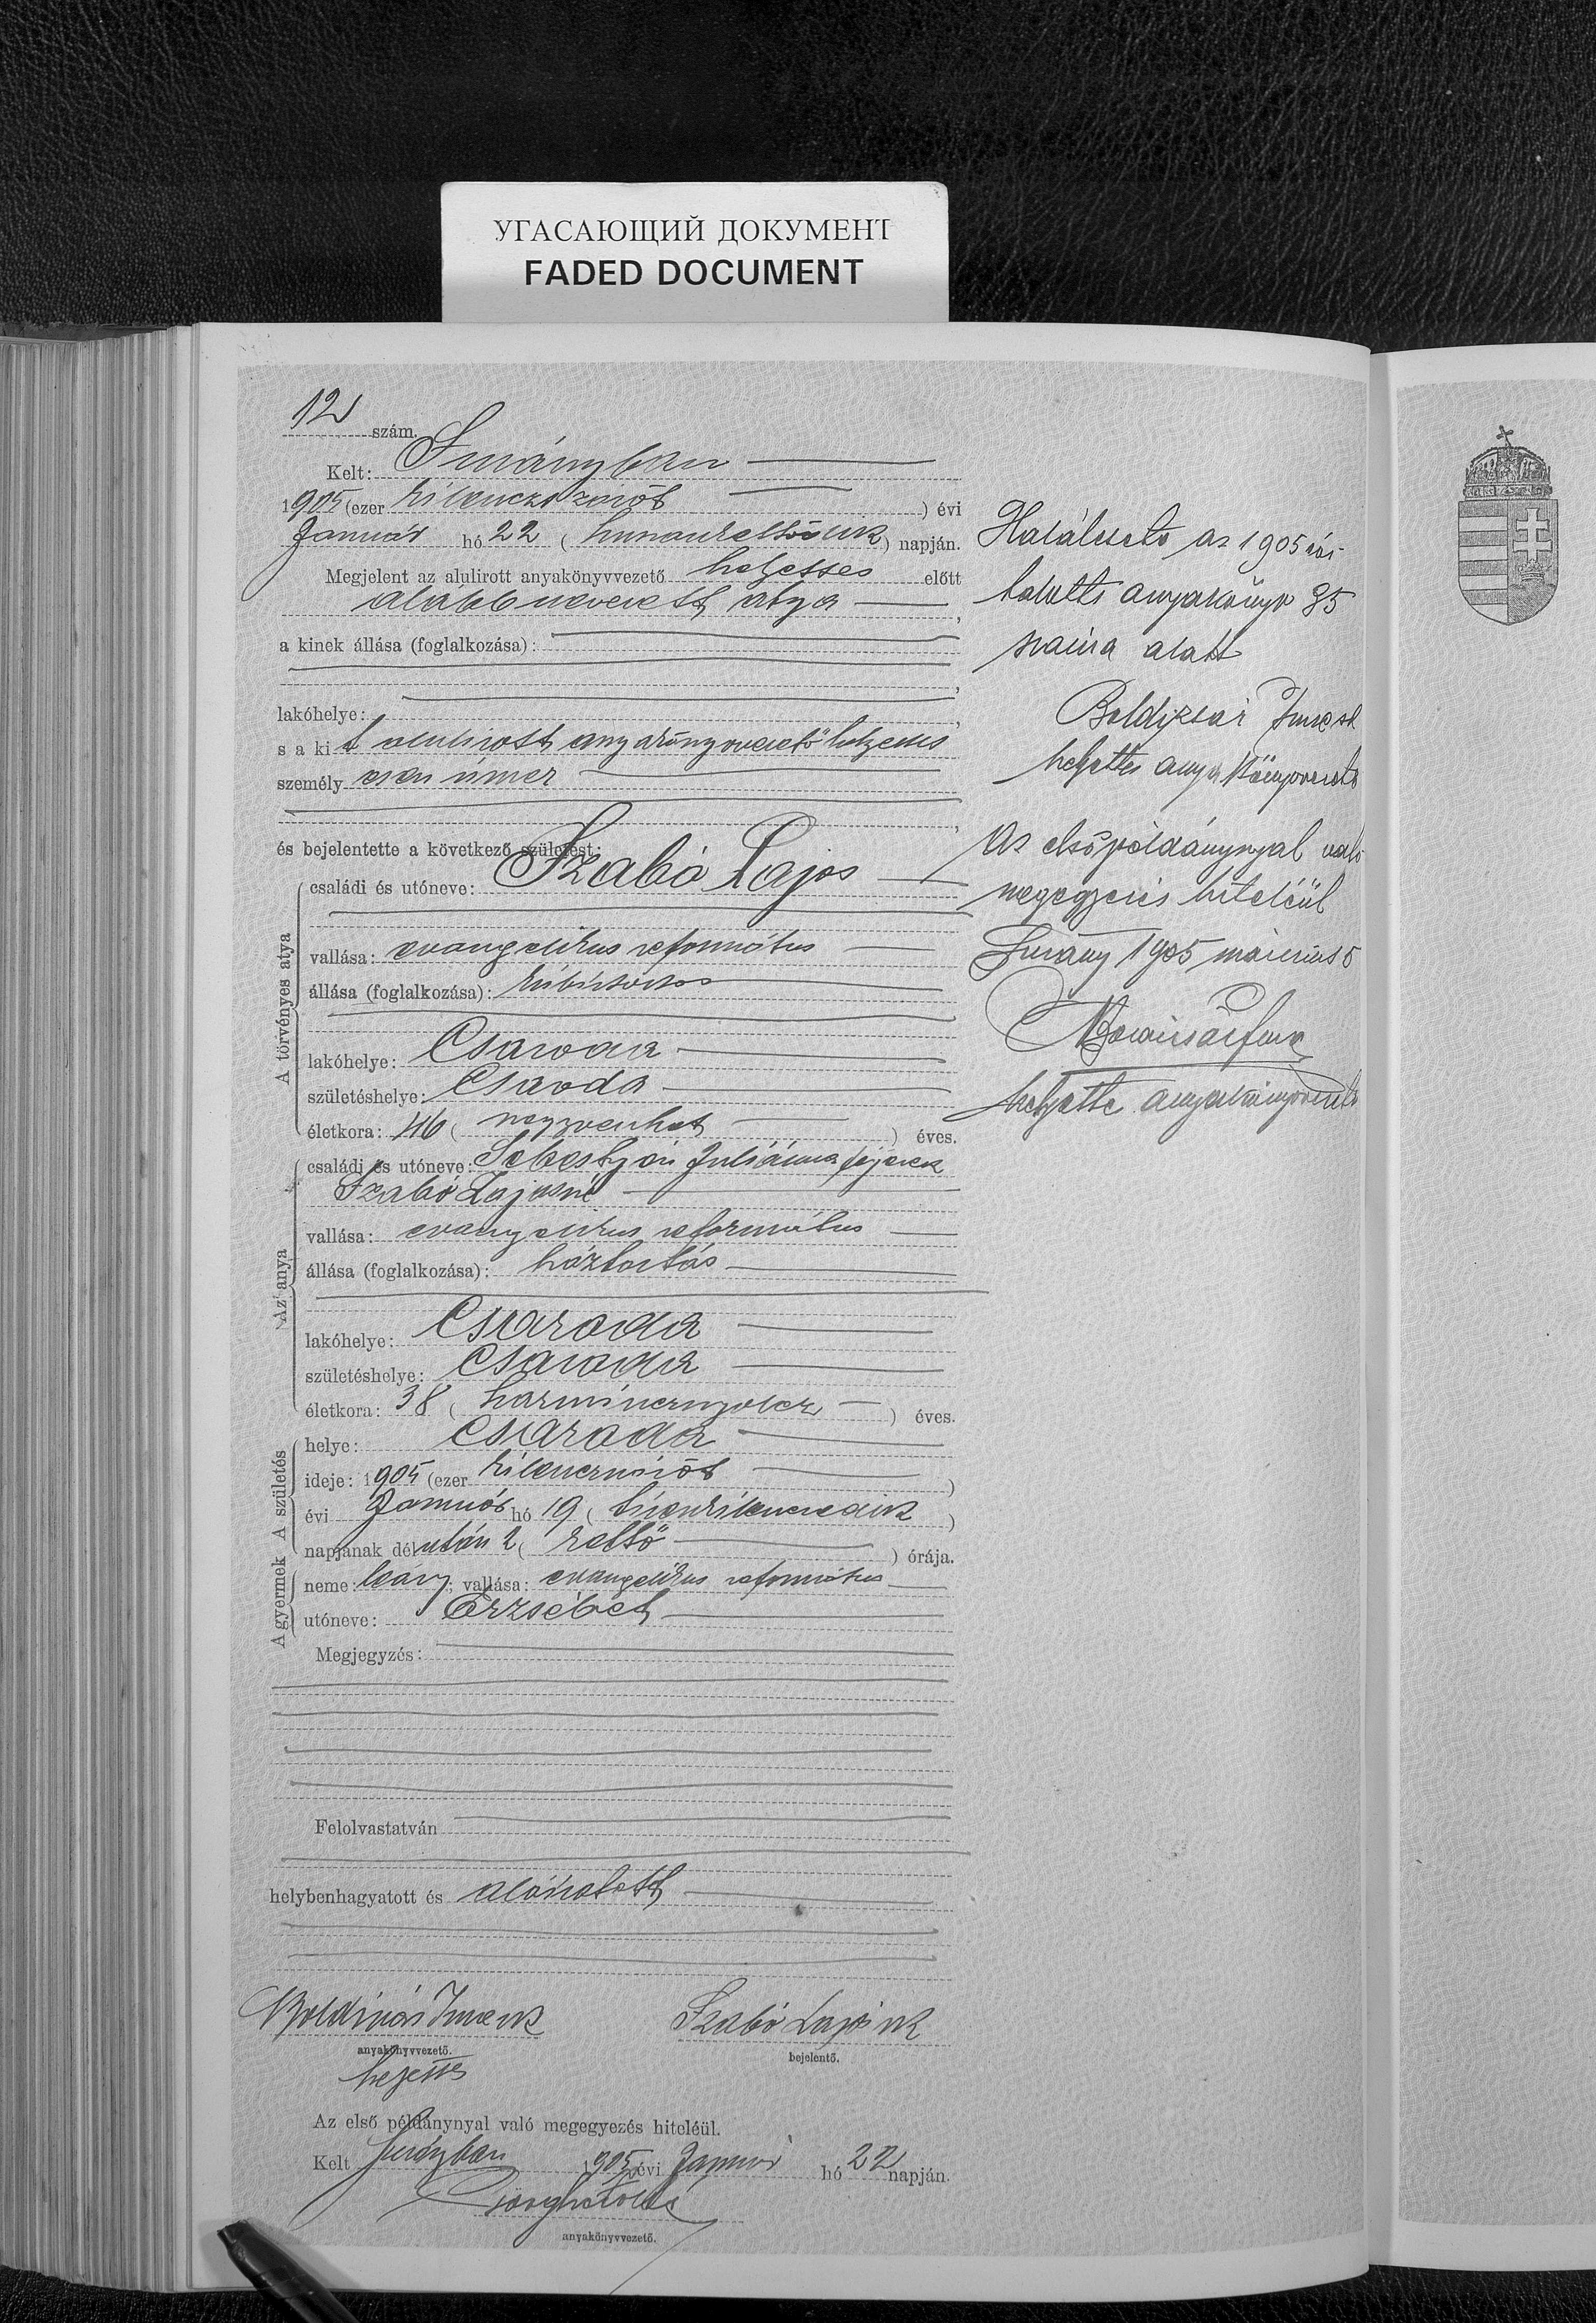 УГАСАЮЩИЙ ДОКУМЕНТ
FADED DOCUMENT
12 szám.
Kelt: Surányban
1905 (ezer kilenczszázöt ) évi
Január hó 22 ( huszonkettődik ) napján.
Megjelent az alulirott anyakönyvvezető helyettes előtt
alább nevezett atya ,
a kinek állása (foglalkozása):
,
lakóhelye: ,
s a kit alulirott anyakönyvvezető helyettes
személyesen ismer
,
és bejelentette a következő születést:
A törvényes atya
családi és utóneve: Szabó Lajos
vallása: evangelikus református
állása (foglalkozása): kisbirtokos
lakóhelye: Csaroda
születéshelye: Csaroda
életkora: 46 ( negyvenhat ) éves.
Az anya
családi és utóneve: Sebestyén Juliánna férjezett
Szabó Lajosné
vallása: evangelikus református
állása (foglalkozása): háztartás
lakóhelye: Csaroda
születéshelye: Csaroda
életkora: 38 ( harmincznyolcz ) éves.
A születés
helye: Csaroda
ideje: 1905 (ezer kilenczszázöt )
évi Január hó 19 ( tizenkilenczedik )
napjának délután 2 ( kettő ) órája.
A gyermek
neme: leány; vallása: evangelikus református
utóneve: Erzsébet
Megjegyzés:
Felolvastatván
helybenhagyatott és aláiratott
Boldizsár Imre sk
anyakönyvvezető.
helyettes
Szabó Lajos sk
bejelentő.
Az első példánynyal való megegyezés hiteléül.
Kelt Surányban 1905 évi Januar hó 22 napján.
anyakönyvvezető.
Halálesete az 1905 évi
halotti anyakönyv 35
száma alatt
Boldizsár Imre sk
helyettes anyakönyvvezető
Az elsőpéldánynyal való
megegyezés hiteléül
Surány 1905 márczius 5
helyettes anyakönyvvezető